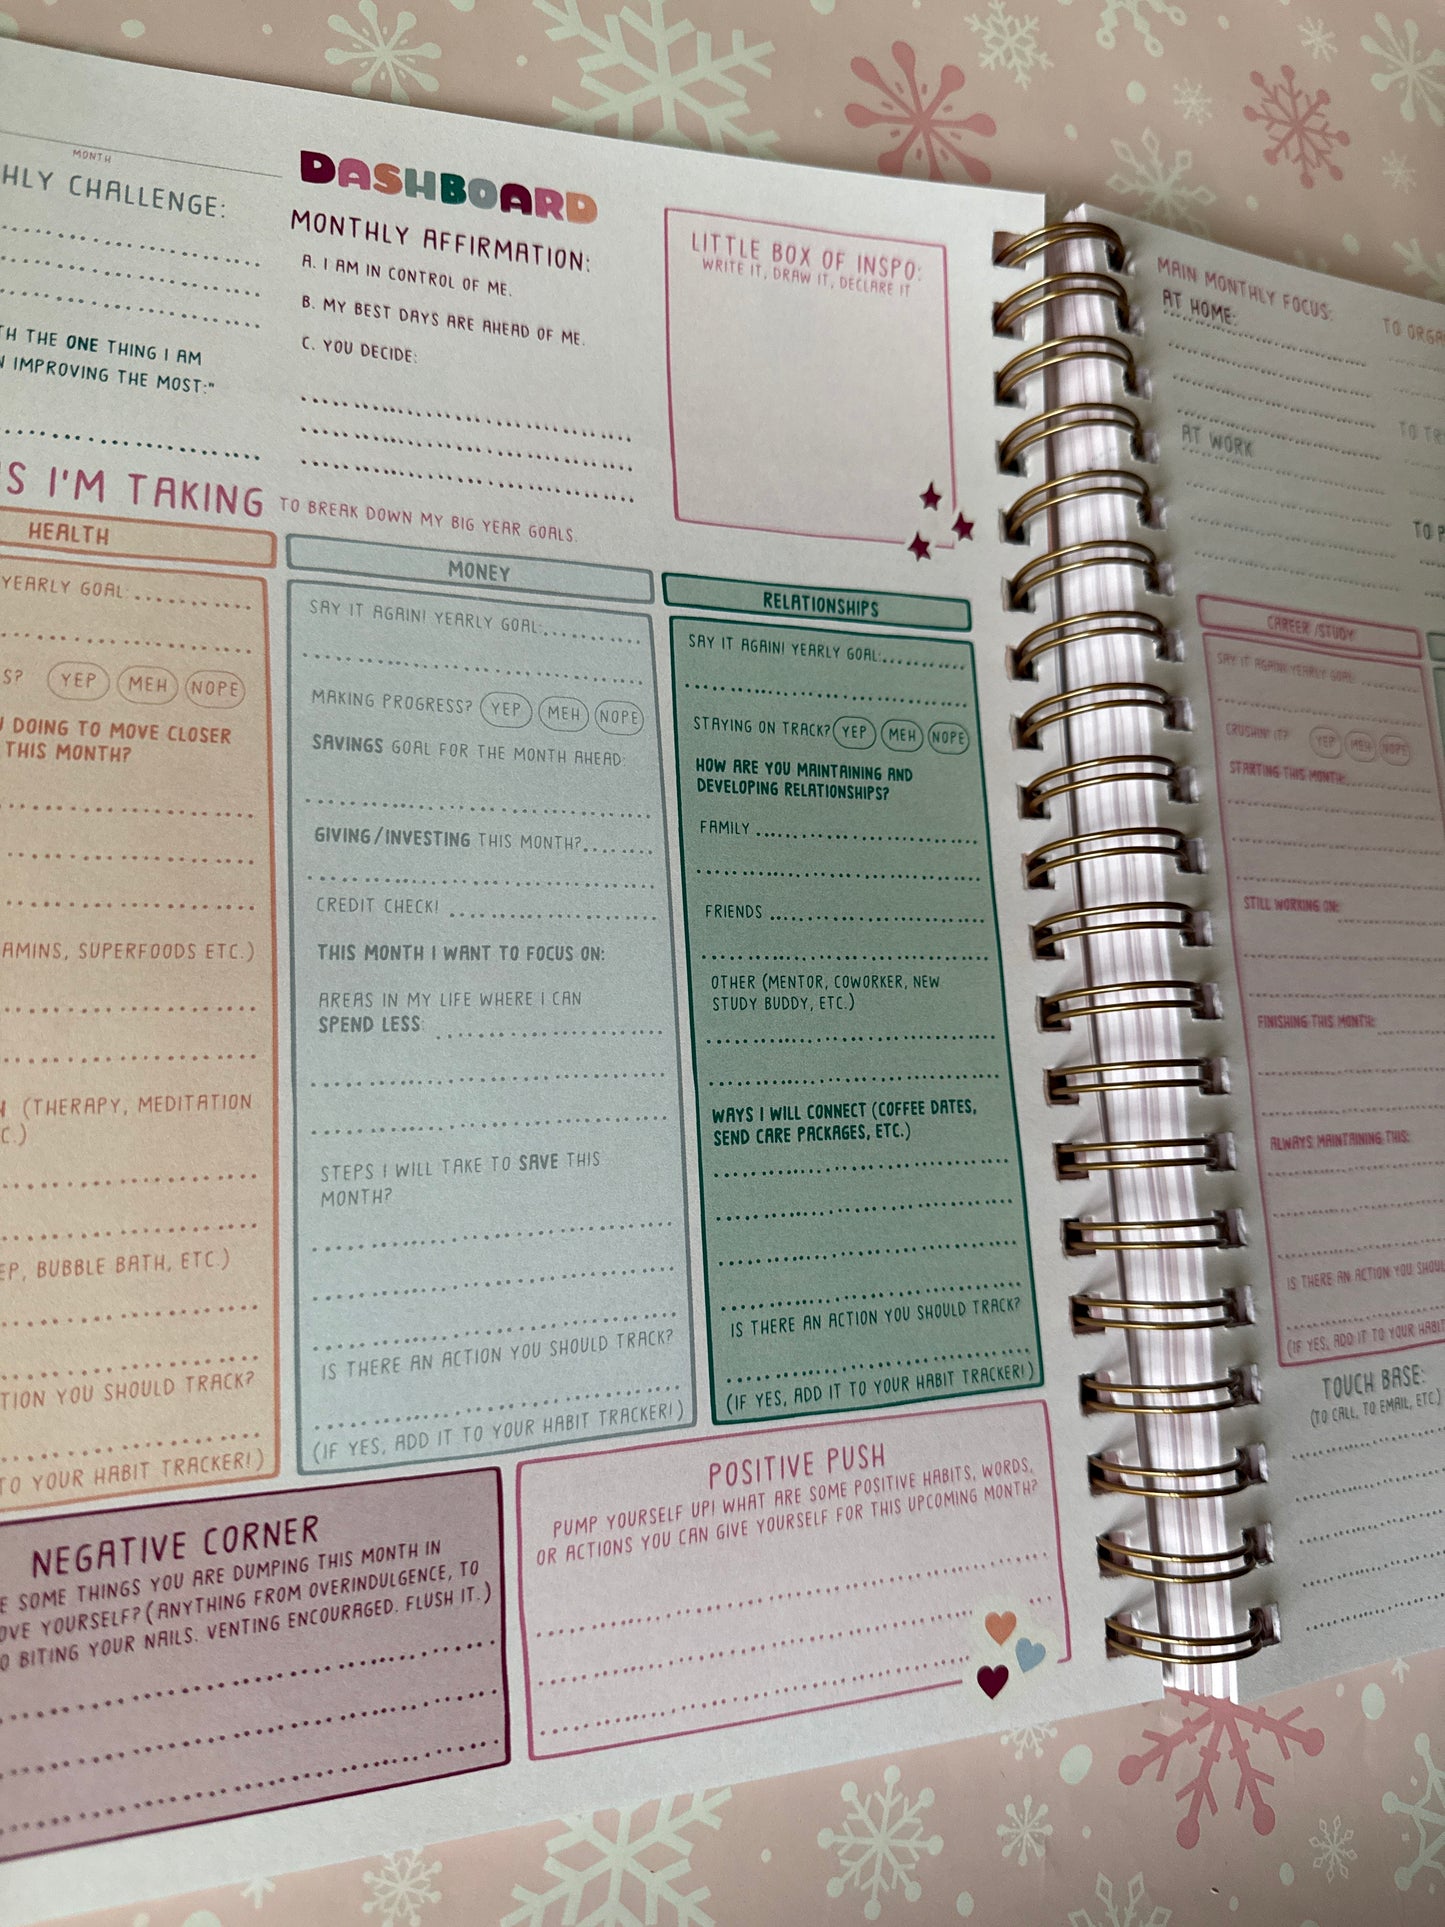 MONTH
DASHBOARD
HLY CHALLENGE:
TH THE ONE THING I AM
IMPROVING THE MOST:"
MONTHLY AFFIRMATION:
A. I AM IN CONTROL OF ME.
B. MY BEST DAYS ARE AHEAD OF ME.
C. YOU DECIDE:
LITTLE BOX OF INSPO:
WRITE IT, DRAW IT, DECLARE IT
S I'M TAKING TO BREAK DOWN MY BIG YEAR GOALS.
HEALTH
YEARLY GOAL:
S? YEP MEH NOPE
DOING TO MOVE CLOSER
THIS MONTH?
AMINS, SUPERFOODS ETC.)
(THERAPY, MEDITATION
C.)
EP, BUBBLE BATH, ETC.)
TION YOU SHOULD TRACK?
TO YOUR HABIT TRACKER!)
MONEY
SAY IT AGAIN! YEARLY GOAL:
MAKING PROGRESS? YEP MEH NOPE
SAVINGS GOAL FOR THE MONTH AHEAD:
GIVING/INVESTING THIS MONTH?
CREDIT CHECK!
THIS MONTH I WANT TO FOCUS ON:
AREAS IN MY LIFE WHERE I CAN
SPEND LESS:
STEPS I WILL TAKE TO SAVE THIS
MONTH?
IS THERE AN ACTION YOU SHOULD TRACK?
(IF YES, ADD IT TO YOUR HABIT TRACKER!)
RELATIONSHIPS
SAY IT AGAIN! YEARLY GOAL:
STAYING ON TRACK? YEP MEH NOPE
HOW ARE YOU MAINTAINING AND
DEVELOPING RELATIONSHIPS?
FAMILY
FRIENDS
OTHER (MENTOR, COWORKER, NEW
STUDY BUDDY, ETC.)
WAYS I WILL CONNECT (COFFEE DATES,
SEND CARE PACKAGES, ETC.)
IS THERE AN ACTION YOU SHOULD TRACK?
(IF YES, ADD IT TO YOUR HABIT TRACKER!)
NEGATIVE CORNER
E SOME THINGS YOU ARE DUMPING THIS MONTH IN
OVE YOURSELF? (ANYTHING FROM OVERINDULGENCE, TO
O BITING YOUR NAILS. VENTING ENCOURAGED. FLUSH IT.)
POSITIVE PUSH
PUMP YOURSELF UP! WHAT ARE SOME POSITIVE HABITS, WORDS,
OR ACTIONS YOU CAN GIVE YOURSELF FOR THIS UPCOMING MONTH?
MAIN MONTHLY FOCUS:
AT HOME:
AT WORK
TO ORGA
TO TR
TO P
CAREER /STUDY
SAY IT AGAIN! YEARLY GOAL:
CRUSHIN' IT? YEP MEH NOPE
STARTING THIS MONTH:
STILL WORKING ON:
FINISHING THIS MONTH:
ALWAYS MAINTAINING THIS:
IS THERE AN ACTION YOU SHOUL
(IF YES, ADD IT TO YOUR HABIT
TOUCH BASE:
(TO CALL, TO EMAIL, ETC.)